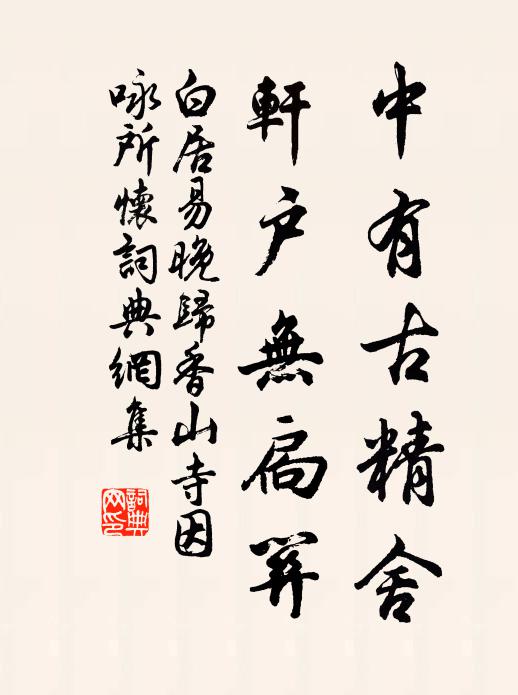 中有古精舍
軒户無扃關
白居易晚歸香山寺因
咏所懷詞典網集
詞典
网印